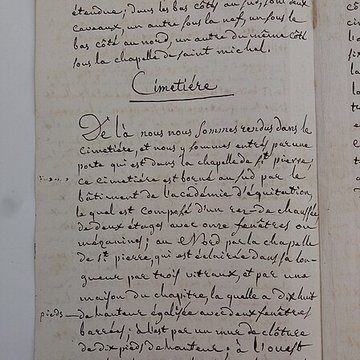 étendue; dans les bas côtés au sud, sont deux
caveaux, un autre sous la nef, un sous le
bas côté au nord, un autre du même côté
sous la chapelle de saint michel.
Cimetiére
De là nous nous sommes rendus dans le
cimetiére, et nous y sommes entrés par une
porte qui est dans la chapelle de st pierre,
ce cimetiére est borné au sud par le
bâtiment de l'académie d'équitation,
le quel est composé d'un rez-de chaussée
de deux étages avec onze fenêtres ou
mézanines; au Nord par la chapelle
de st pierre, qui est éclairée dans sa lon-
gueur par trois vitraux, et par une
maison du chapitre, la quelle a dix huit
pieds de hauteur égalisée avec deux fenêtres
barrées; à l'est par un mur de clôture
de dix pieds de hauteur; à l'ouest